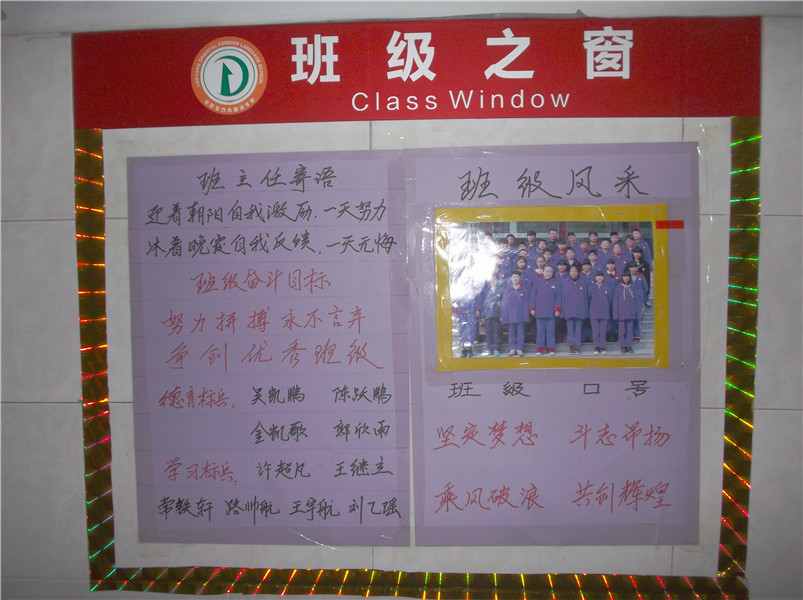 班级之窗
Class Window
班主任寄语
迎着朝阳自我激励,一天努力
沐着晚霞自我反馈,一天无悔
班级奋斗目标
努力拼搏永不言弃
争创优秀班级
德育标兵: 吴凯鹏 陈跃鹏
金凯歌 郎欣雨
学习标兵: 许超凡 王继立
常铁轩 路帅航 王宇航 刘乙瑶
班级风采
班级 口号
坚定梦想 斗志昂扬
乘风破浪 共创辉煌